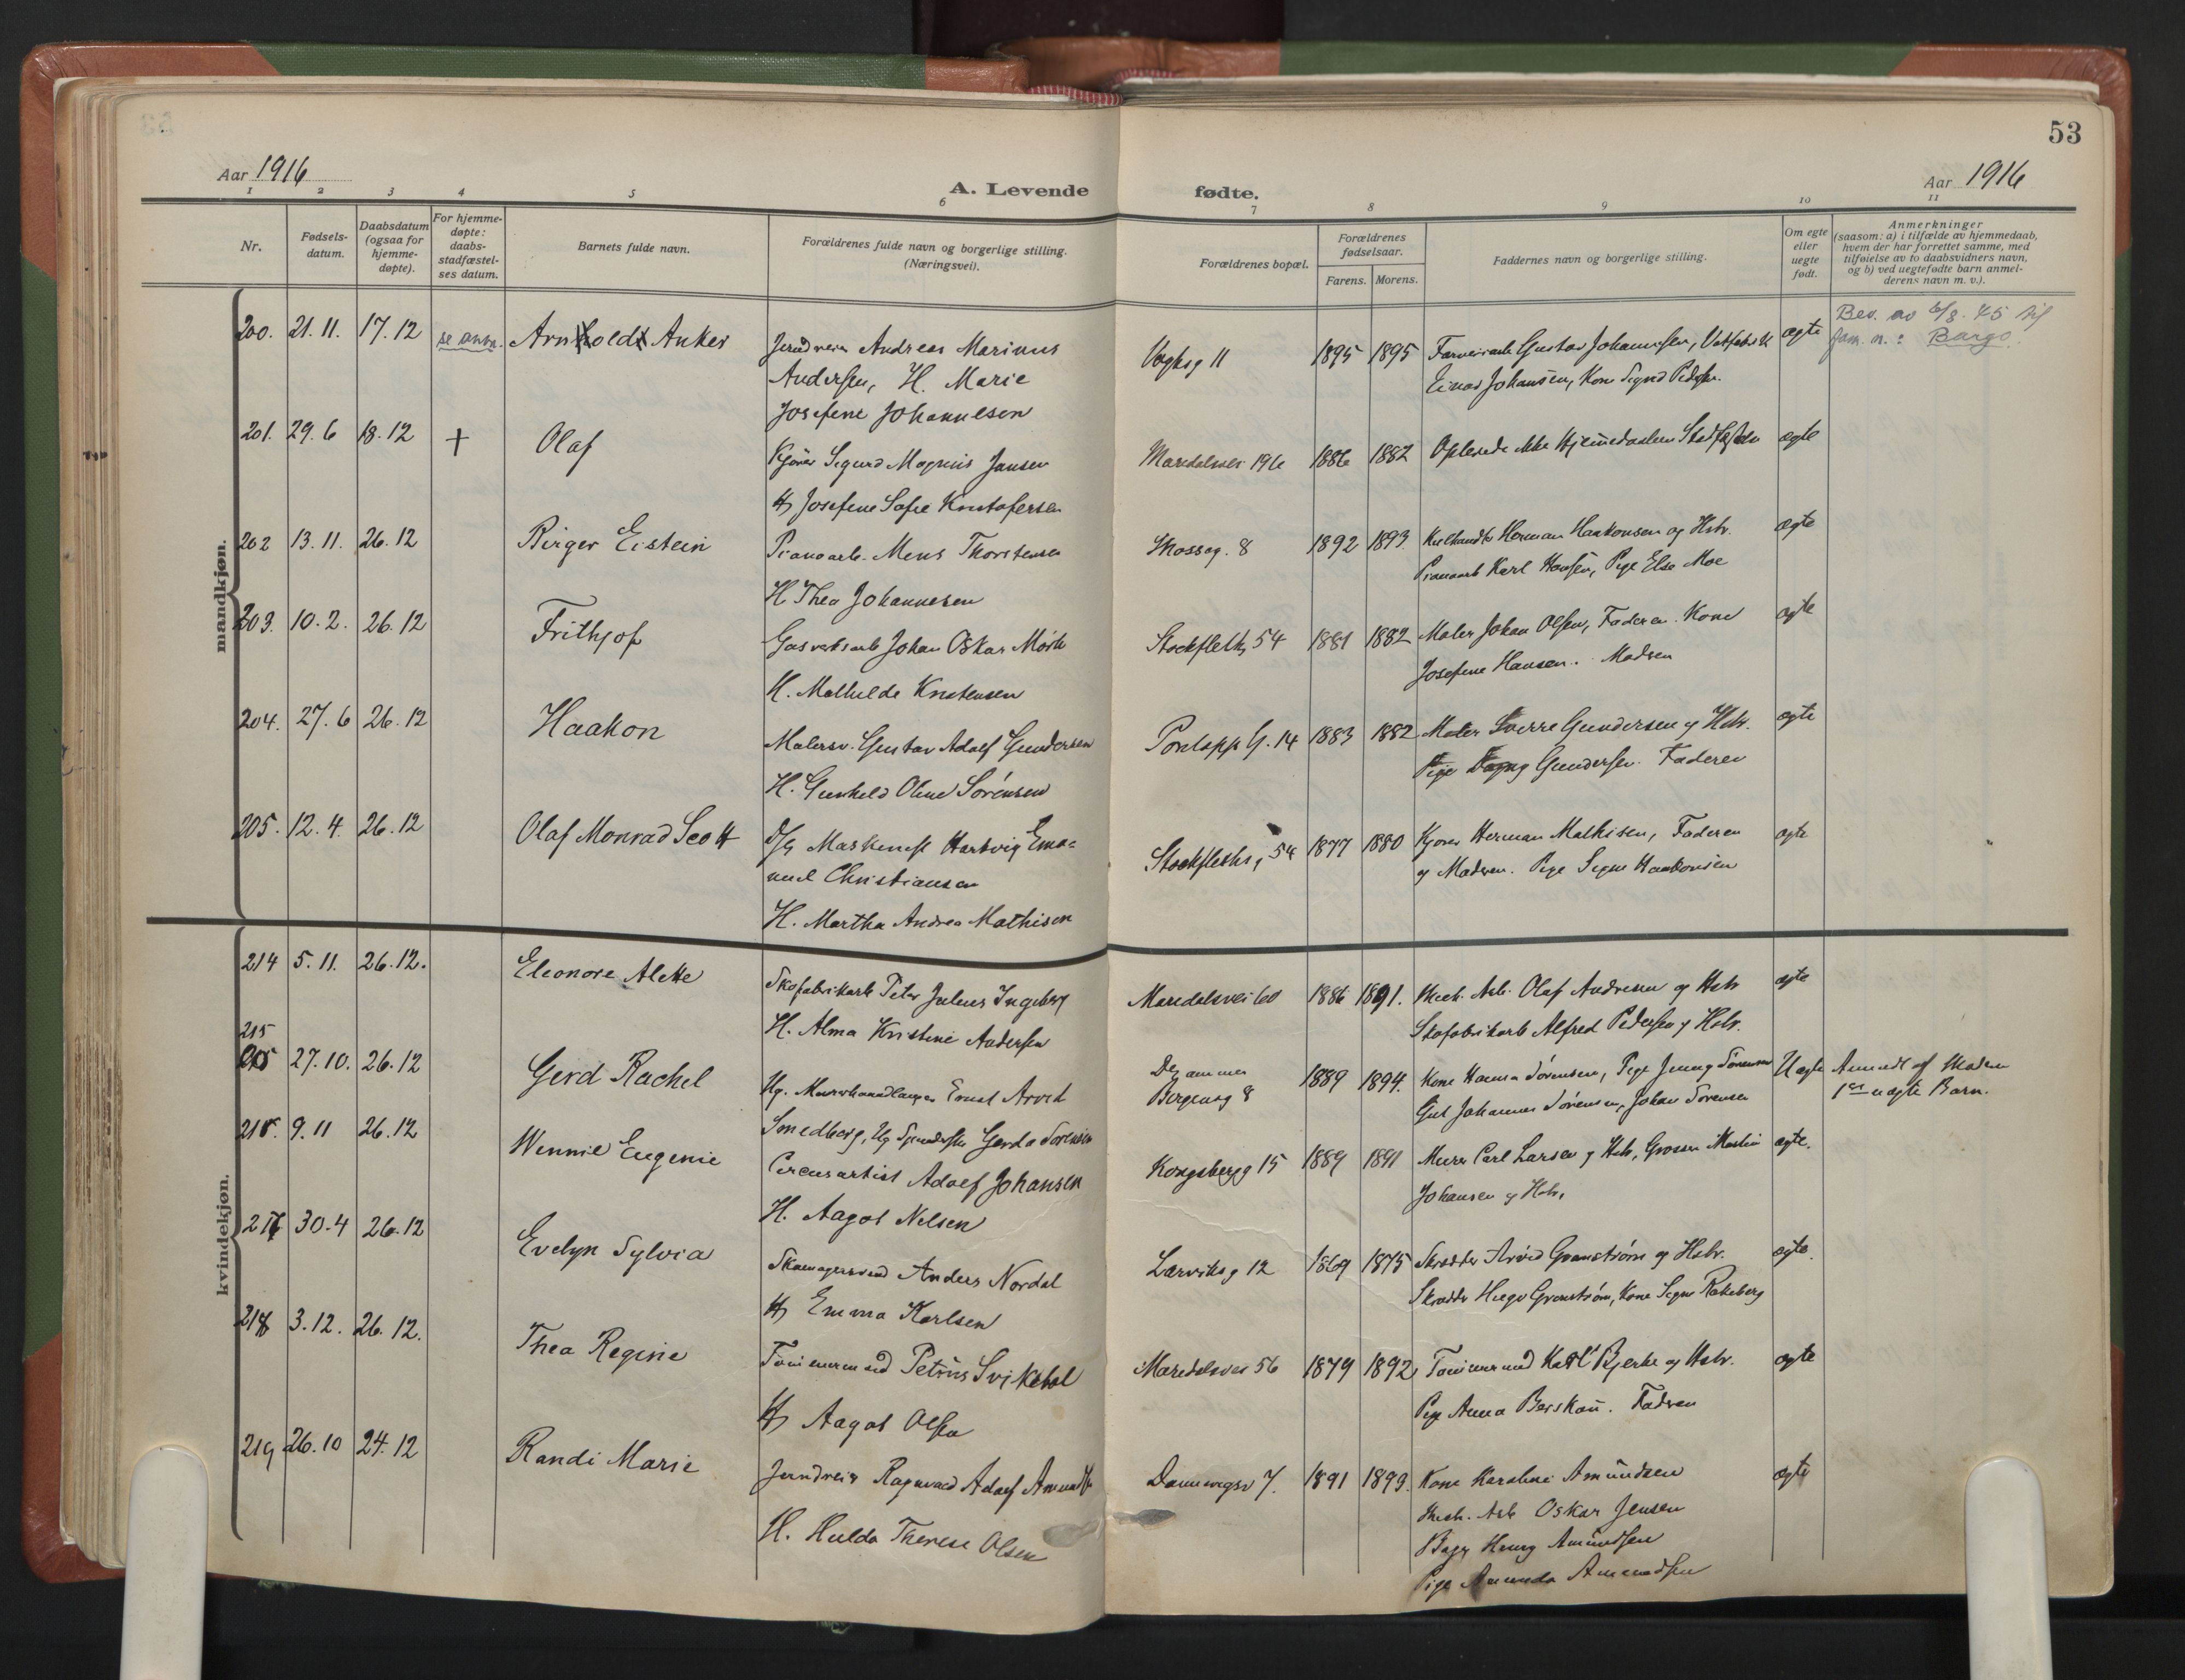 53
Aar 1916
A. Levende
fødte.
Aar 1916
1 2 3 4 5 6 7 8 9 10 11
Nr.
Fødsels-
datum.
Daabsdatum
(ogsaa for
hjemme-
døpte).
For hjemme-
døpte:
daabs-
stadfæstel-
ses datum.
Barnets fulde navn.
Forældrenes fulde navn og borgerlige stilling.
(Næringsvei).
Forældrenes bopæl.
Forældrenes
fødselsaar.
Farens. Morens.
Faddernes navn og borgerlige stilling.
Om egte
eller
uegte
født.
Anmerkninger
(saasom: a) i tilfælde av hjemmedaab,
hvem der har forrettet samme, med
tilføielse av to daabsvidners navn,
og b) ved uegtefødte barn anmel-
derens navn m. v.).
mandkjøn.
200. 21. 11. 17. 12 se anm. Arnold Anker
Andreas Marinus
Andersen, H. Marie
Josefine Johannesen
Vogtsg 11 1895 1895 Gustav Johannesen,
Einar Johansen, Kone Sigrid Pedersen
egte
Bev. av 6/8. 45 til
fam. n.: Bargo
201. 29. 6 18. 12 + Olaf
Kjører Sigurd Magnus Jansen
H Josefine Sofie Kristofersen
Maridalsvei 196 1886 1882 Oplevede ikke Hjemmedaabens Stadfæstelse egte
202 13. 11. 26. 12 Birger Eistein
Pianoarb. Mens Thorstensen
H Thea Johannesen
Mosseg. 8 1892 1893. Herman Haakonsen og Hstr.
Pianoarb Karl Hansen, Pige Else Moe
egte
203. 10. 2. 26. 12 Frithjof
Gasverksarb Johan Oskar Mørk
H. Mathilde Kristensen
Stockfletsg 54 1881 1882 Maler Johan Olsen, Faderen. Kone
Josefine Hansen. Madsen
egte
204. 27. 6 26. 12 Haakon
Malersv. Gustav Adolf Gundersen
H. Gunhild Oline Sørensen
G. 14 1883 1882 Maler Sverre Gundersen og Hstr.
Pige Dagny Gundersen. Faderen
egte
205. 12. 4. 26. 12 Olaf Monrad Scott
Hartvig Ema=
nuel Christiansen
H. Martha Andrea Mathisen
Stockflethsg 54 1877 1880 Kjører Herman Mathisen, Faderen
og Moderen. Pige Signe Haakonsen
egte
kvindekjøn.
214 5. 11. 26. 12. Eleonore Alette
Skofabrikarb Peter Julius Ingeberg
H. Alma Kristine Andersen
Maridalsvei 60 1886 1891. Mech. Arb. Olaf Andresen og Hstr
Skofabrikarb Alfred Pedersen og Hstr.
egte
215
27. 10. 26. 12 Gerd Rachel
Ug. Murerhaandlanger Ernst Arvid
Smedberg, Ug Gerda Sørensen
Bergensg 8 1889 1894. Kone Hanna Sørensen, Pige Jenny Sørensen
Gut Johannes Sørensen, Johan Sørensen
Uegte Anmeldt af Moderen
1ste uegte Barn.
216. 9. 11 26. 12 Wennie Eugenie
Circusartist Adolf Johansen
H. Aagot Nelsen
Kongsbergg 15 1889 1891 Murer Carl Larsen og Hstr, Martin
Johansen og Hstr.
egte.
217 30. 4 26. 12 Evelyn Sylvia
Skomagersvend Anders Nordal
H Emma Karlsen
Larviksg 12 1869 1875 Skrædder Arvid Granstrøm og Hstr.
Skrædder Hugo Granstrøm, Kone Signe Rakeberg
egte.
218 3. 12. 26. 12. Thea Regine
Tømmermand Petrus
H Aagot Olsen
Maridalsvei 56 1879 1892 Tømmermand Karl Bjerke og Hstr.
Pige Anna Berskau. Faderen
egte
219 26. 10 24. 12 Randi Marie
Ragnvald Adolf
H. Hulda Therese Olsen
7. 1891 1899. Kone Karoline Amundsen
Mech. Arb Oskar Jensen
Henry Amundsen
Pige Amunda Amundsen
egte